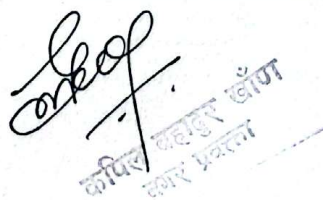 कपिल बहादुर खाँण
नगर प्रवक्ता